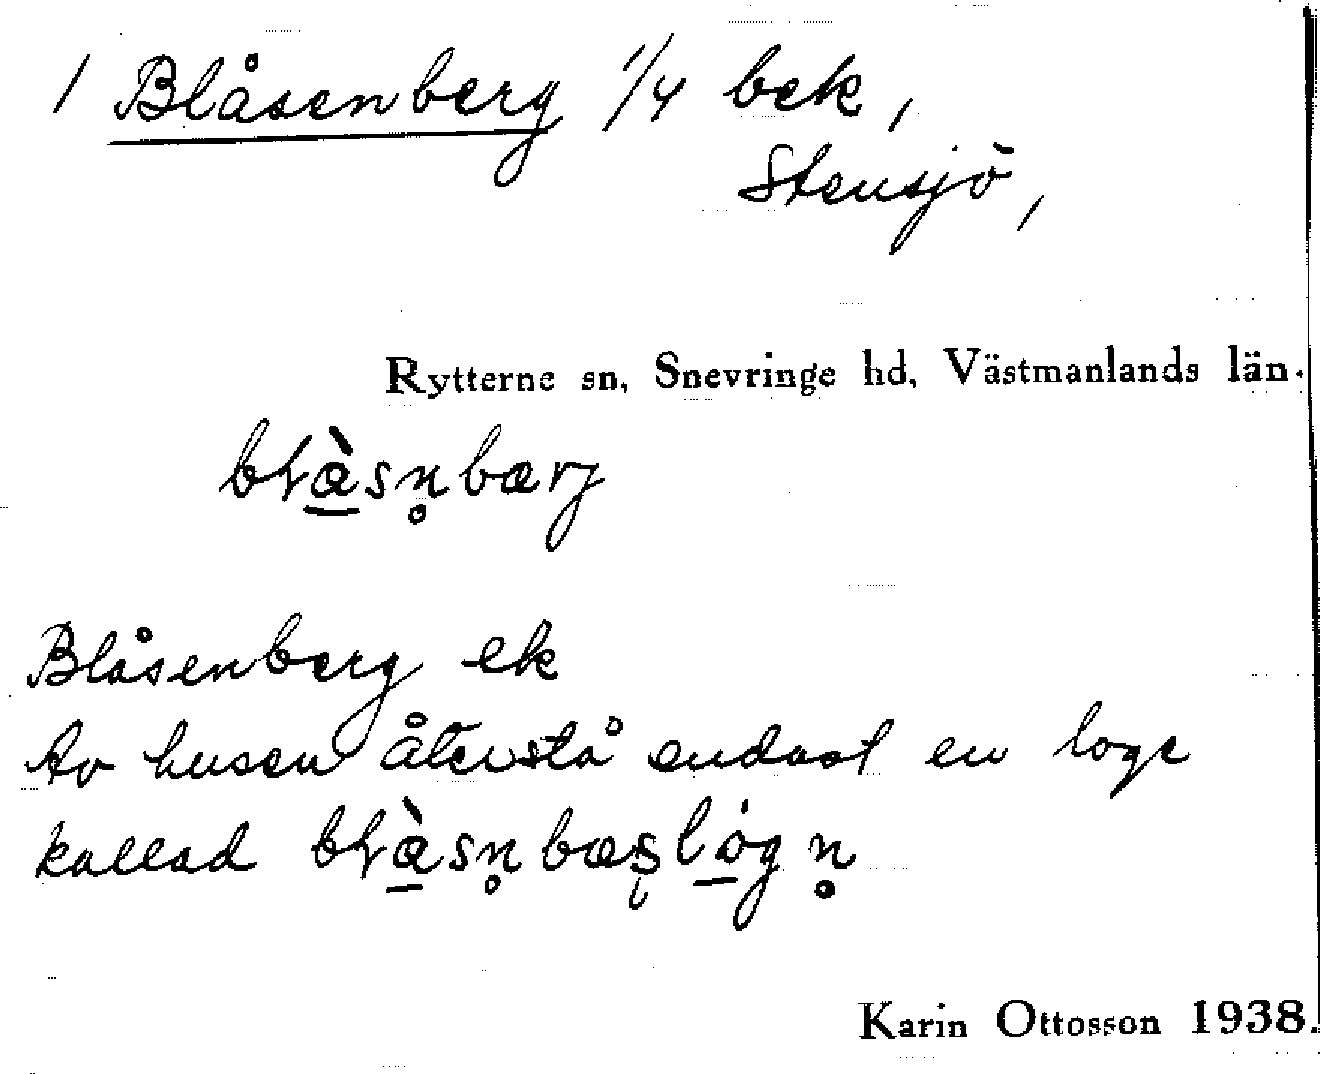 1 Blåsenberg 1/4 bek,
Stensjö,
Rytterne sn, Snevringe hd, Västmanlands län.
bɫà̱sn̥bærj
Blåsenberg ek
Av husen återstå endast en loge
kallad bɫà̱sn̥bæʂló̱gn̥
Karin Ottosson 1938.